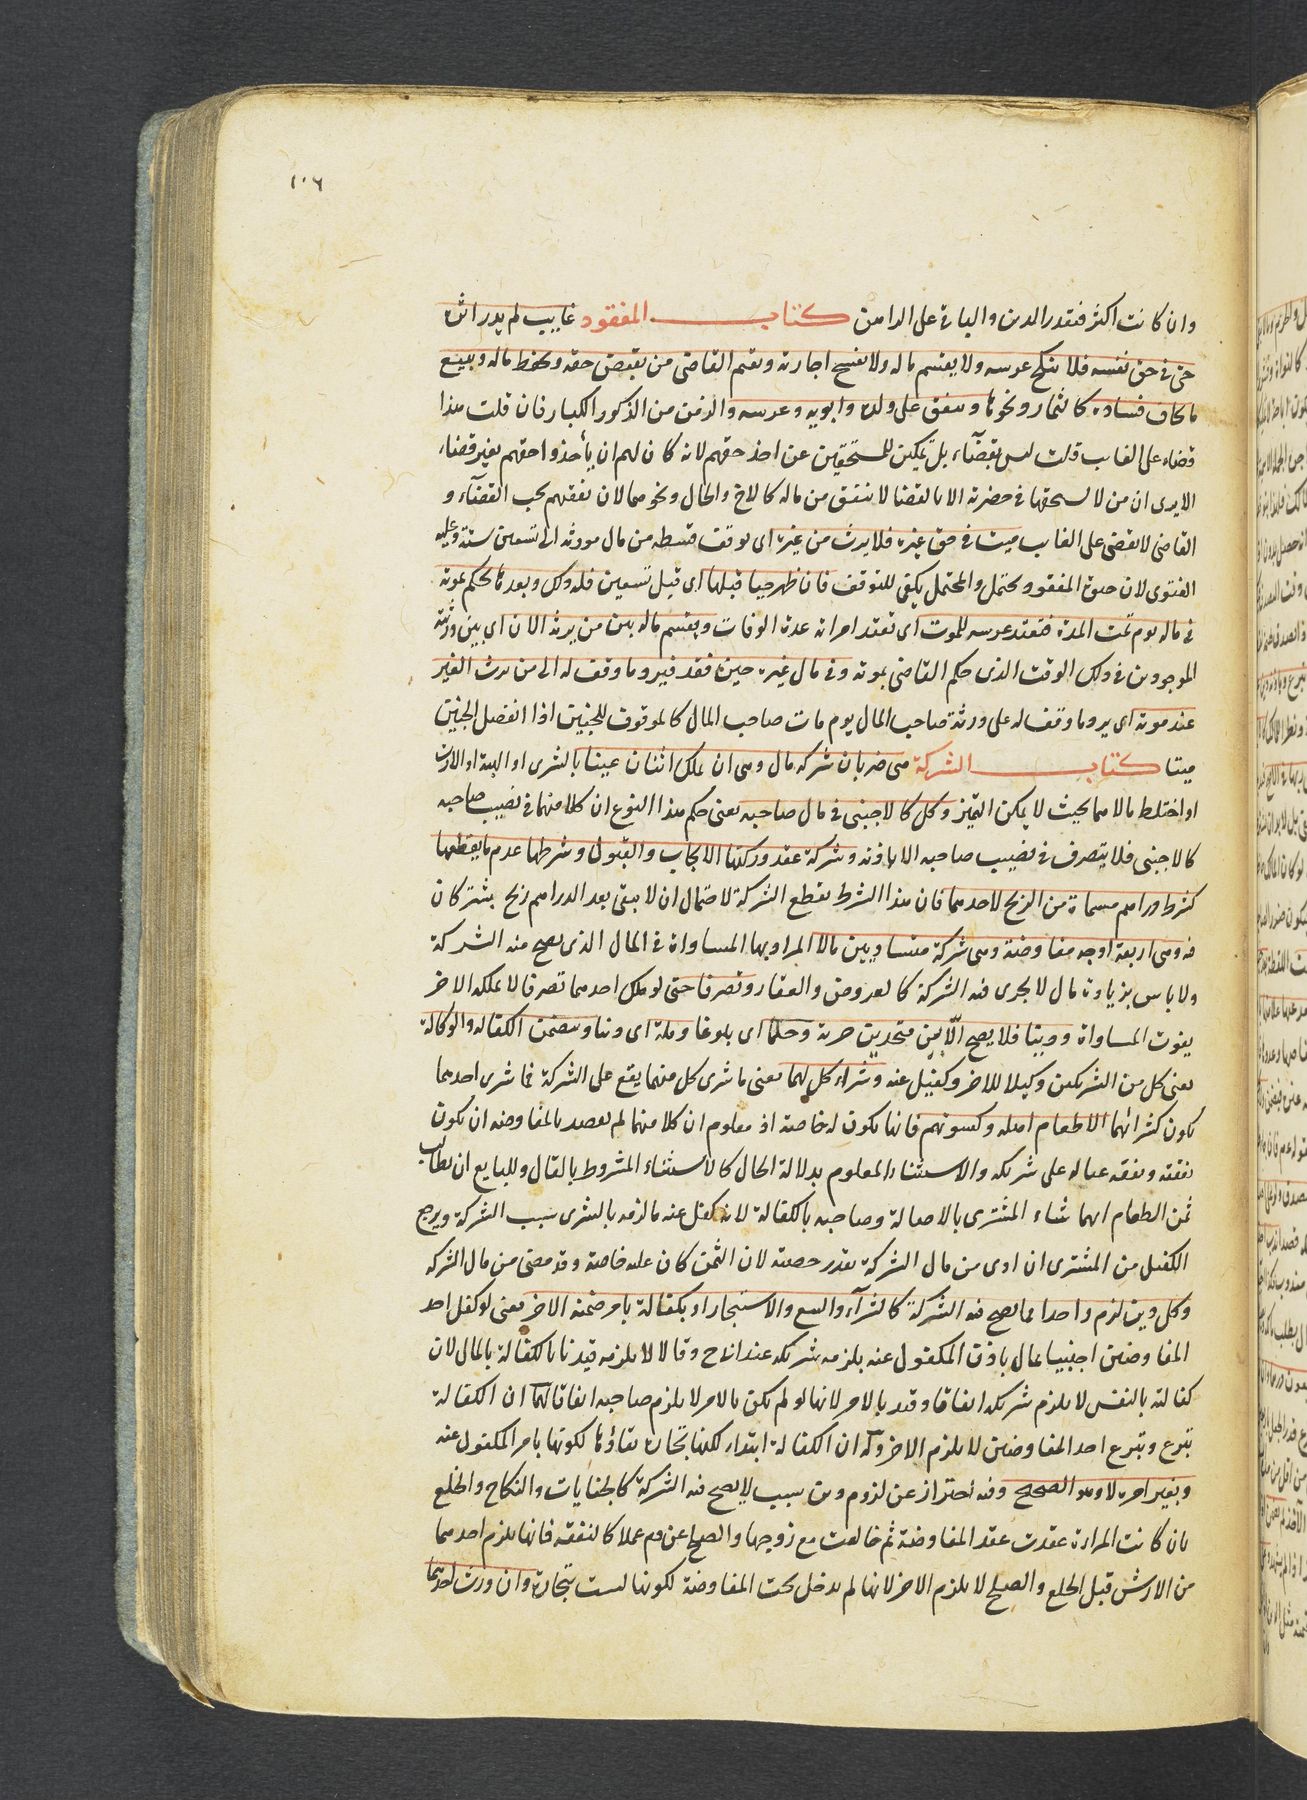 ١٠٦
وان كانت اكثر فبقدر الدين والباقى على الراهن كتاب المفقود غايب لم يدر اثره
حى فى حق نفسه فلا ينكح عرسه ولا يقسم ماله ولا تفسخ اجارته ويقيم القاضى من يقبض حقه ويحفظ ماله ويبيع
ما يخاف فساده كالثمار ونحوها وينفق على ولده وابويه وعرسه والزمن من الذكور الكبار فان قلت هذا
قضاء على الغايب قلت ليس بقضآء بل تمكين للمستحقين عن اخذ حقهم لانه كان لهم ان يأخذوا حقهم بغير قضاء
الا يرى ان من لا يستحقها فى حضرته الا بالقضا لا ينفق من ماله كالاخ والخال ونحوهما لان نفقتهم يجب القضآء و
القاضى لا يقضى على الغايب ميت فى حق غيره فلا يرث من غيره اى يوقف قسطه من مال مورثه الى تسعين سنة وعليه
الفتوى لان حيوة المفقود محتمل والمحتمل يكفى للتوقف فان ظهر حيا قبلها اى قبل تسعين فله ذلك وبعدها يحكم بموته
فى ماله يوم تمت المدة فتعتد عرسه للموت اى تعتد امراته عدة الوفات ويقسم ماله بين من يرثه الان اى بين ورثته
الموجودين فى ذلك الوقت الذى حكم القاضى بموته وفى مال غيره حين فقد فيرد ما وقف له الى من يرث الغير
عند موته اى يرد ما وقف له على ورثة صاحب المال يوم مات صاحب المال كالموقوف للجنين اذا انفصل الجنين
ميتا كتاب الشركة هى ضربان شركة مال وهى ان يملك اثنان عينا بالشرى او الهبة او الارث
او اختلط مالاهما بحيث لا يمكن التميز وكل كالاجنبى فى مال صاحبه يعنى حكم هذا النوع ان كلا منهما فى نصيب صاحبه
كالاجنبى فلا يتصرف فى نصيب صاحبه الا باذنه وشركة عقد وركنها الايجاب والقبول وشرطها عدم ما يقطعها
كشرط دراهم مسماة من الربح لاحدهما فان هذا الشرط يقطع الشركة لاحتمال ان لا يبقى بعد الدراهم ربح يشتركان
فيه وهى اربعة اوجه مفاوضة وهى شركة متساويين مالا المراد بها المساواة فى المال الذى يصح فيه الشركة
ولا باس بزيادة مال لا يجرى فيه الشركة كالعروض والعقار وتصرفا حتى لو ملك احدهما تصرفا لا يملكه الاخر
يفوت المساواة ودينا فلا يصح الّا بين متحدين حرية وحلما اى بلوغا وملة اى دينا ويتضمن الكفالة والوكالة
يعنى كل من الشريكين وكيلا للاخر وكفيل عنه وشراء كل لهما يعنى ما شرى كل منهما يقع على الشركة فما شرى احدهما
يكون كشرائهما الا طعام اهله وكسوتهم فانها يكون له خاصة اذ معلوم ان كلا منهما لم يقصد بالمفاوضه ان يكون
نفقته ونفقه عياله على شريكه والاستثناء المعلوم بدلالة الحال كالاستثناء المشروط بالقال وللبايع ان يطالب
ثمن الطعام ايهما شاء المشترى بالاصالة وصاحبه بالكفالة لانه كفل عنه ما لزمه بالشرى بسبب الشركة ويرجع
الكفيل من المشترى ان ادى من مال الشركة بقدر حصته لان الثمن كان عليه خاصة وقد مضى من مال الشركه
وكل دين لزم واحدا بما يصح فيه الشركة كالشرآء والبيع والاستيجار او بكفالة بامر ضمنه الاخر يعنى لو كفل احد
المفاوضين اجنبيا بمال باذن المكفول عنه يلزمه شريكه عند ابى ح وقالا لا يلزمه قيدنا بالكفالة بالمال لان
كفالته بالنفس لا يلزم شريكه اتفاقا وقيد بالامر لانها لو لم تكن بالامر لا يلزم صاحبه اتفاقا لهما ان الكفالة
تبرع وتبرع احد المفاوضين لا يلزم الاخر وله ان الكفالة ابتداء لكنها تجارة بقاؤها لكونها بامر المكفول عنه
وبغير امره لا وهو الصحيح وفيه احتراز عن لزوم دين بسبب لا يصح فيه الشركة كالجنايات والنكاح والخلع
بان كانت المراءة عقدت عقد المفاوضة ثم خالعت مع زوجها والصلح عن دم عمدا كالنفقه فانها يلزم احدهما
من الارش قبل الخلع والصلح لا يلزم الاخر لانها لم يدخل تحت المفاوضة لكونها ليست بتجارة وان ورث احدهما